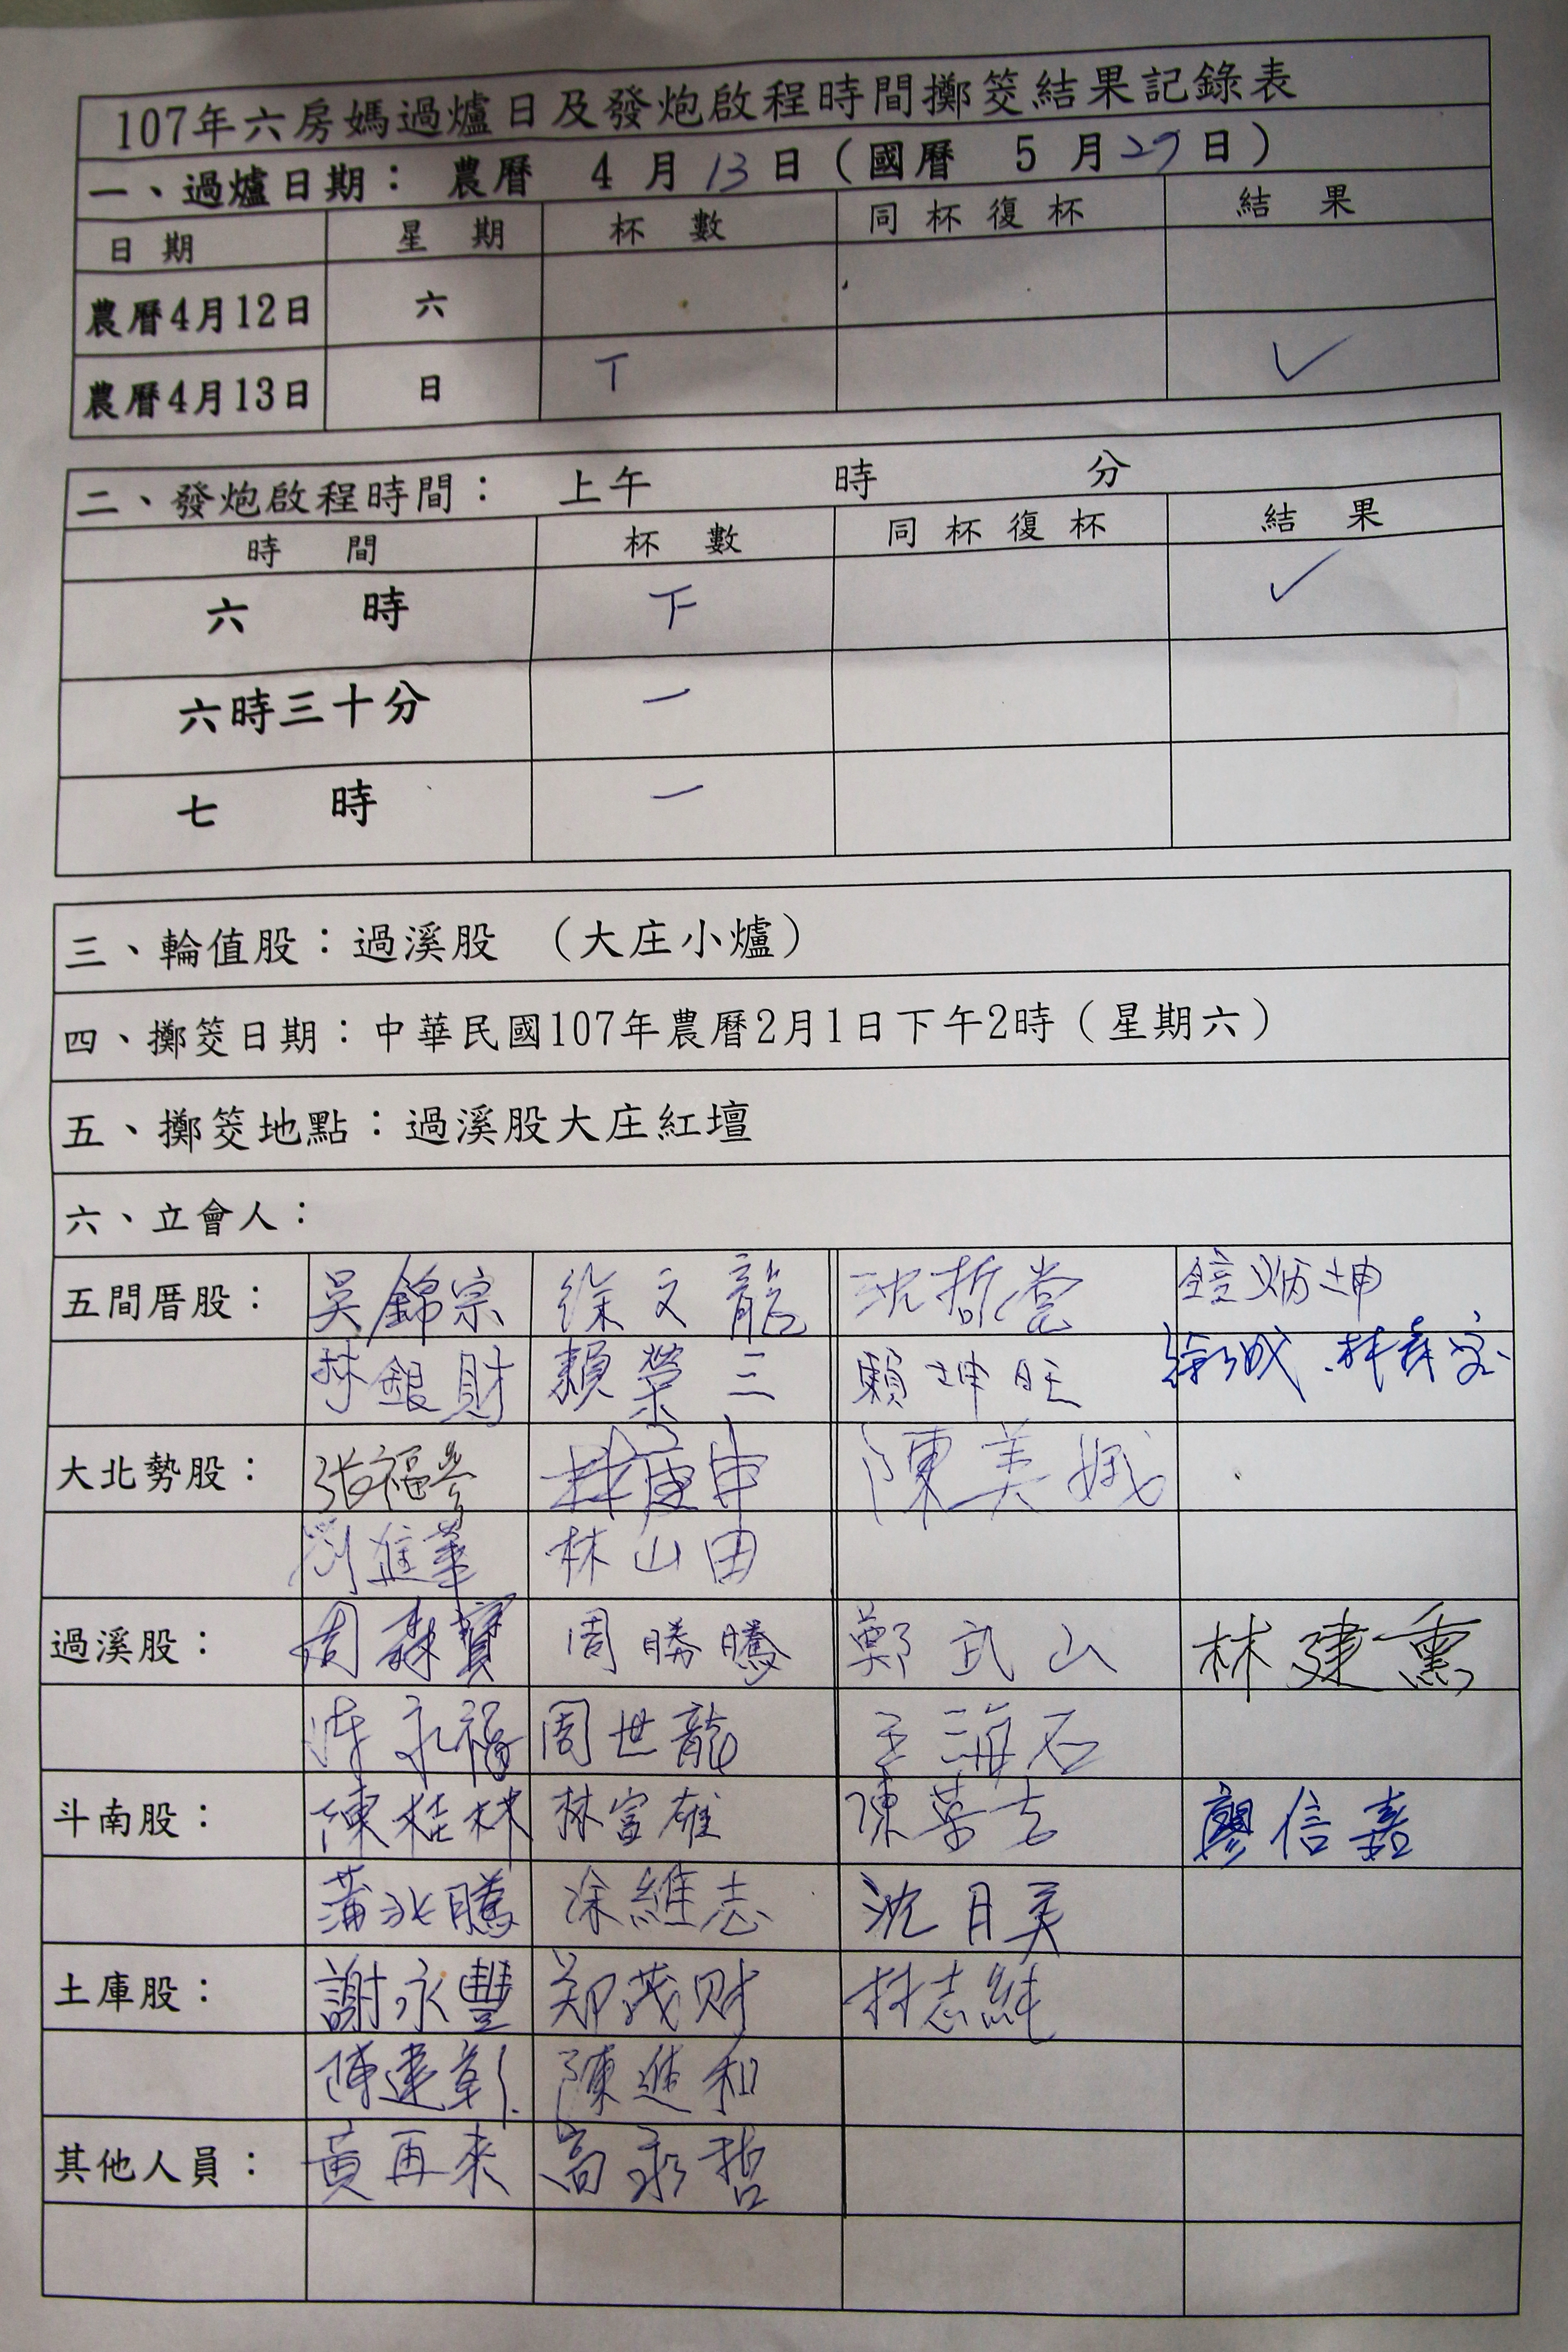 107年六房媽過爐日及發炮啟程時間擲筊結果記錄表
一、過爐日期： 農曆 4 月 13 日（國曆 5 月 27 日）
日 期 星 期 杯 數 同 杯 復 杯 結 果
農曆4月12日 六
農曆4月13日 日 丅 ✓
二、發炮啟程時間： 上午 時 分
時 間 杯 數 同 杯 復 杯 結 果
六 時 下 ✓
六時三十分 一
七 時 一
三、輪值股：過溪股 （大庄小爐）
四、擲筊日期：中華民國107年農曆2月1日下午2時（星期六）
五、擲筊地點：過溪股大庄紅壇
六、立會人：
五間厝股： 吳錦宗 徐文龍 沈哲 炳坤
林銀財 賴榮三 賴坤旺
大北勢股： 張福 林庚申 陳美娥
劉進華 林山田
過溪股： 周森寶 周勝騰 鄭武山 林建熏
永福 周世龍 王海石
斗南股： 陳桂林 林富雄 陳 廖信嘉
蒲 騰 涂維志 沈月美
土庫股： 謝永豐 郑茂财 林志純
陳建彰 陳進和
其他人員： 黃再來 高永哲